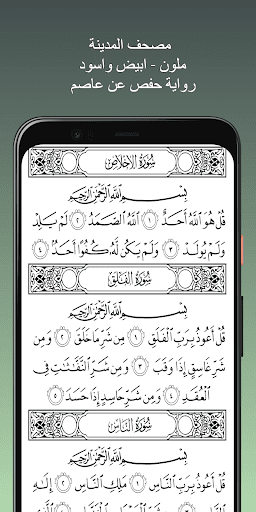 مصحف المدينة
ملون - ابيض واسود
رواية حفص عن عاصم
سُورَةُ الإِخْلَاصِ
بِسْمِ ٱللَّهِ ٱلرَّحْمَٰنِ ٱلرَّحِيمِ
قُلْ هُوَ ٱللَّهُ أَحَدٌ ١ ٱللَّهُ ٱلصَّمَدُ ٢ لَمْ يَلِدْ
وَلَمْ يُولَدْ ٣ وَلَمْ يَكُن لَّهُۥ كُفُوًا أَحَدٌۢ ٤
سُورَةُ الفَلَقِ
بِسْمِ ٱللَّهِ ٱلرَّحْمَٰنِ ٱلرَّحِيمِ
قُلْ أَعُوذُ بِرَبِّ ٱلْفَلَقِ ١ مِن شَرِّ مَا خَلَقَ ٢ وَمِن
شَرِّ غَاسِقٍ إِذَا وَقَبَ ٣ وَمِن شَرِّ ٱلنَّفَّٰثَٰتِ فِى
ٱلْعُقَدِ ٤ وَمِن شَرِّ حَاسِدٍ إِذَا حَسَدَ ٥
سُورَةُ النَّاسِ
بِسْمِ ٱللَّهِ ٱلرَّحْمَٰنِ ٱلرَّحِيمِ
قُلْ أَعُوذُ بِرَبِّ ٱلنَّاسِ ١ مَلِكِ ٱلنَّاسِ ٢ إِلَٰهِ